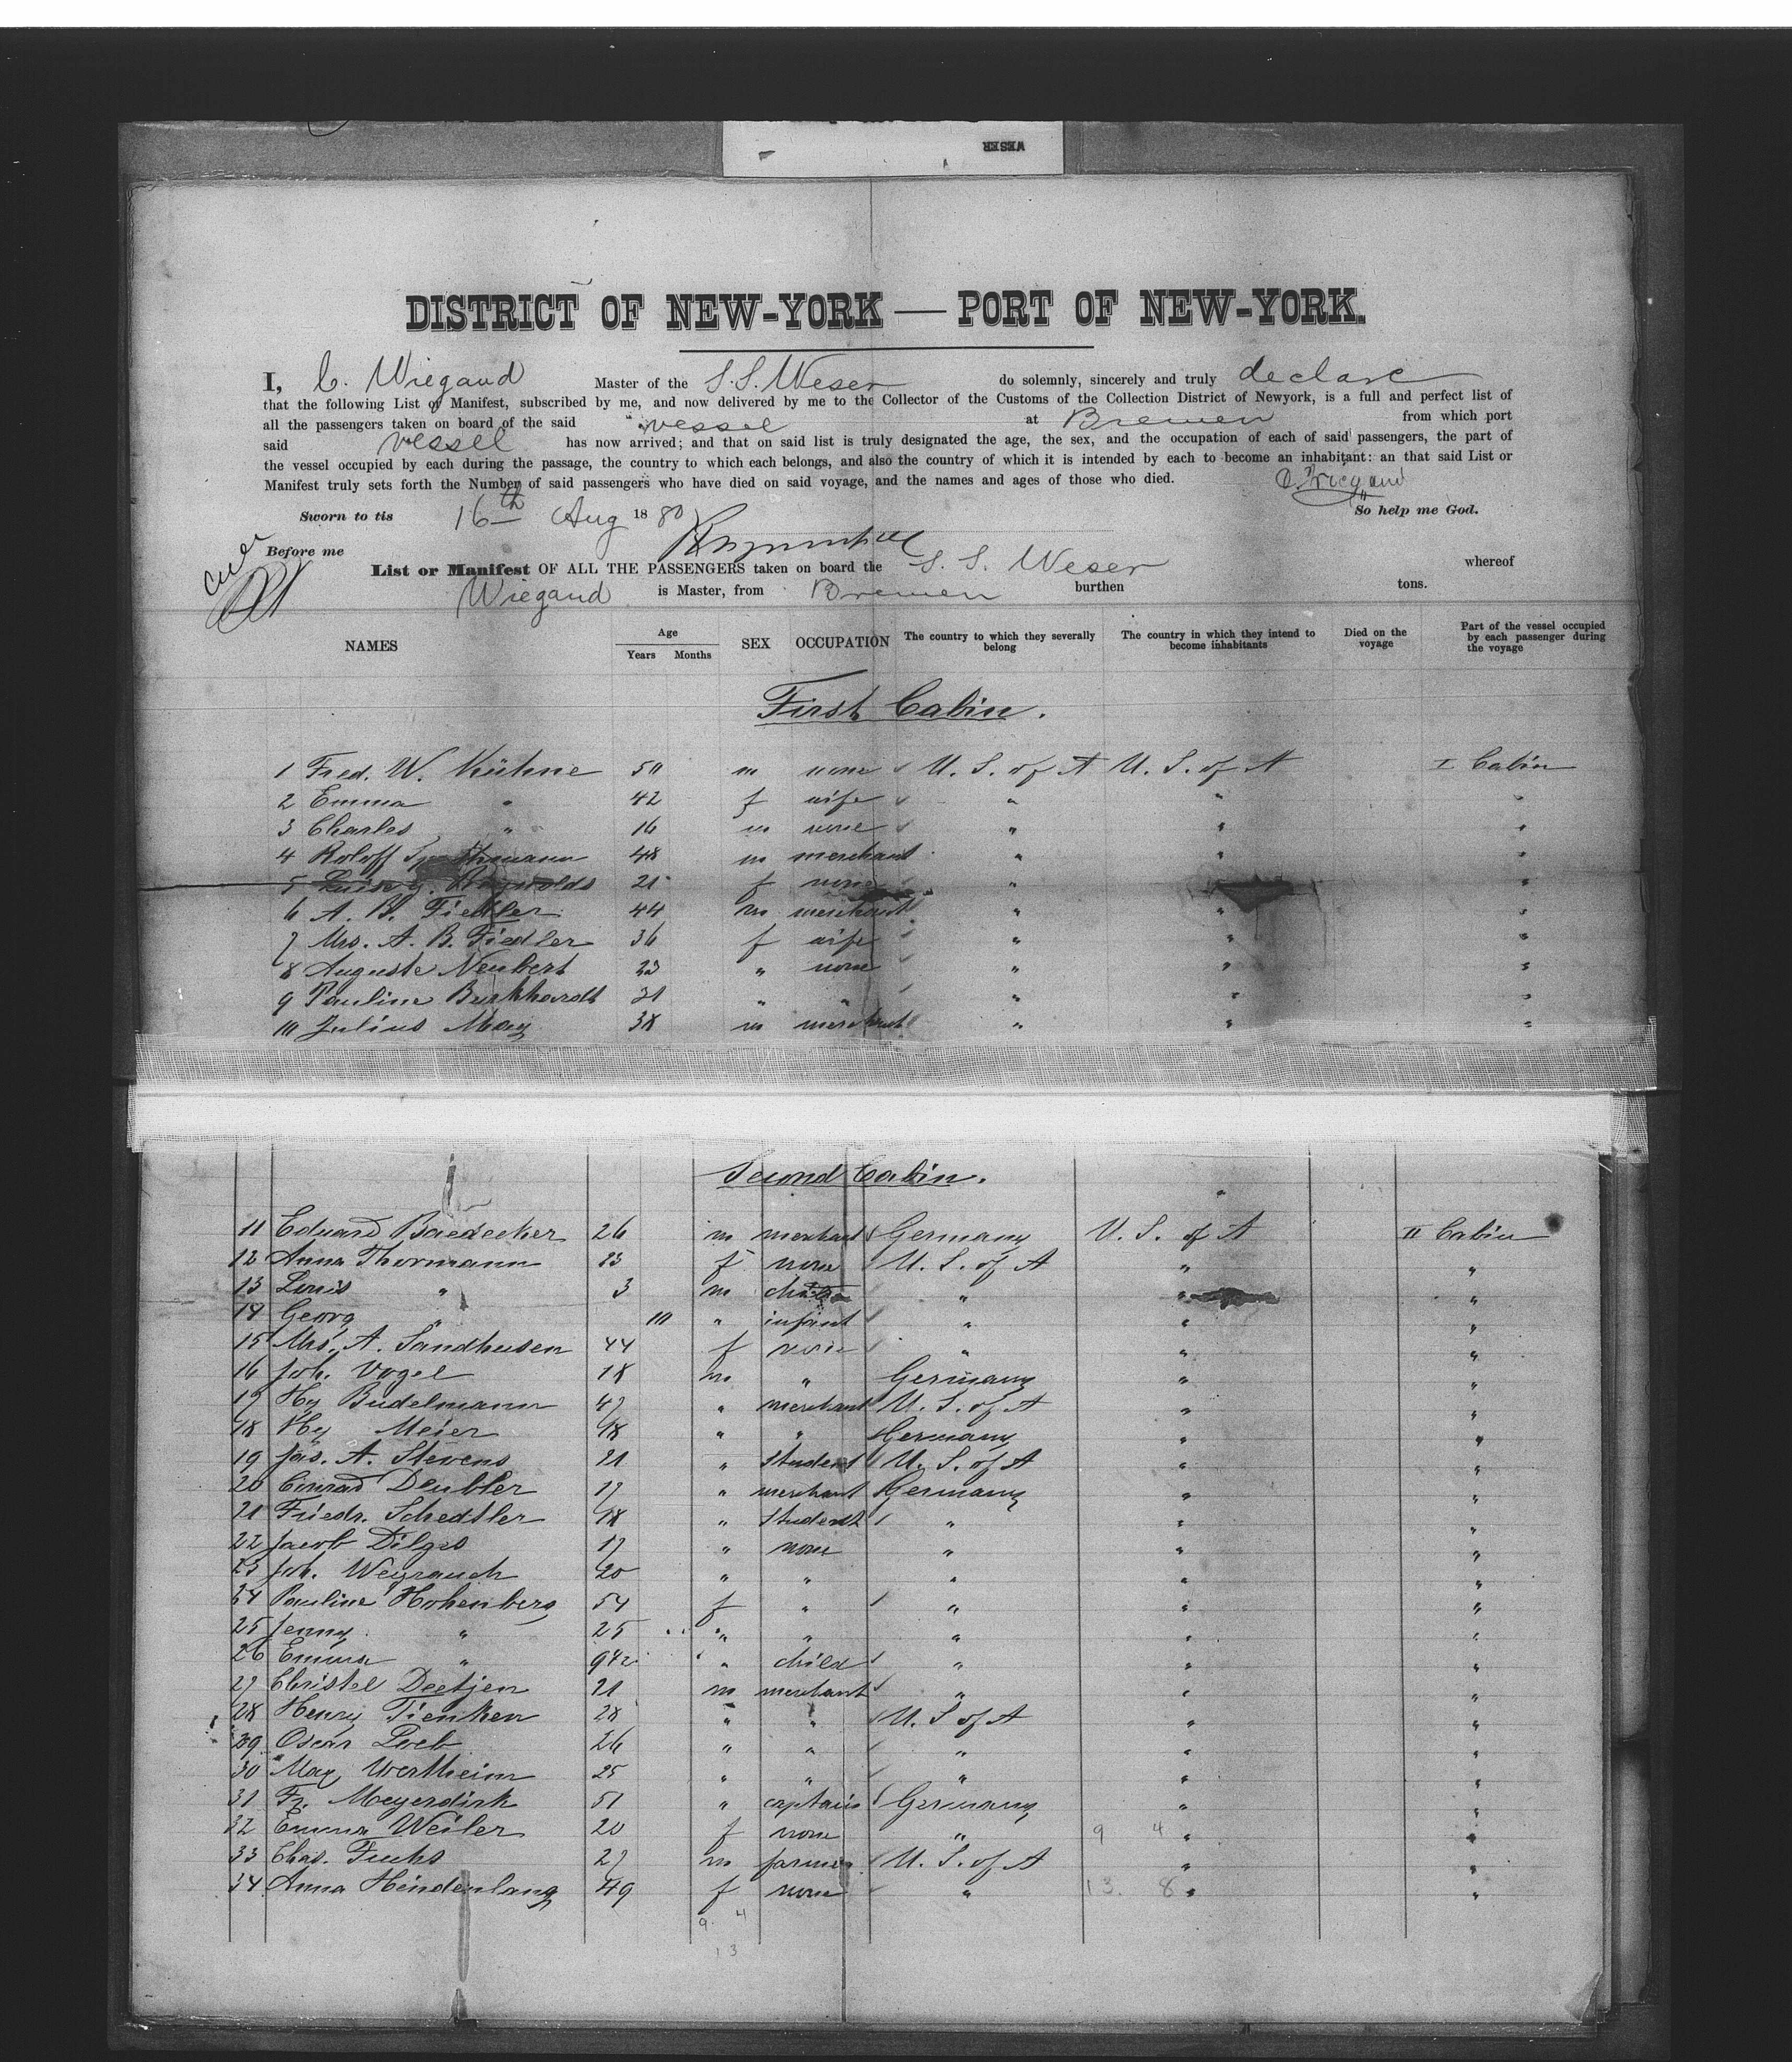 WESER
DISTRICT OF NEW-YORK — PORT OF NEW-YORK.
I, C. Wiegand Master of the S.S. Weser do solemnly, sincerely and truly declare
that the following List or Manifest, subscribed by me, and now delivered by me to the Collector of the Customs of the Collection District of Newyork, is a full and perfect list of
all the passengers taken on board of the said vessel at Bremen from which port
said vessel has now arrived; and that on said list is truly designated the age, the sex, and the occupation of each of said passengers, the part of
the vessel occupied by each during the passage, the country to which each belongs, and also the country of which it is intended by each to become an inhabitant: an that said List or
Manifest truly sets forth the Number of said passengers who have died on said voyage, and the names and ages of those who died. C. Wiegand
Sworn to tis 16th Aug 1880 So help me God.
Before me
List or Manifest OF ALL THE PASSENGERS taken on board the S. S. Weser whereof
Wiegand is Master, from Bremen burthen tons.
NAMES Age Years Months SEX OCCUPATION The country to which they severally belong The country in which they intend to become inhabitants Died on the voyage Part of the vessel occupied by each passenger during the voyage
First Cabin.
1 Fred. W. Kühne 50 m none U. S. of A U. S. of A I Cabin
2 Emma " 42 f wife " " "
3 Charles " 16 m none " " "
4 Roloff 48 m merchant " " "
5 Reynolds 21 f none " " "
6 A. B. Fiedler 44 m merchant " " "
7 Mrs. A. B. Fiedler 36 f wife " " "
8 Auguste Neubert 23 " none " " "
9 Pauline Burkhardt 31 " " " " "
10 Julius May 38 m merchant " " "
Second Cabin.
"
11 Eduard Baedecker 26 m merchant Germany U. S. of A II Cabin
12 Anna Thormann 23 f none U. S. of A " "
13 Louis " 3 m child " " "
14 Georg " 10 " infant " " "
15 Mrs. A. Sandhusen 44 f none " " "
16 Joh. Vogel 18 m " Germany " "
17 Hy Büdelmann 47 " merchant U. S. of A " "
18 Hy Meier 48 " " Germany " "
19 Jas. A. Stevens 21 " student U. S. of A " "
20 Conrad Deubler 17 " merchant Germany " "
21 Friedr. Schedtler 18 " student " " "
22 Jacob Dilges 17 " none " " "
23 Joh. Weyrauch 20 " " " " "
24 Pauline Hohenberg 54 f " " " "
25 Jenny " 25 " " " " "
26 Emma " 9½ " child " " "
27 Christel Deetjen 21 m merchant " " "
28 Henry Tienken 28 " " U. S of A " "
29 Oscar Loeb 26 " " " " "
30 Max Wertheim 25 " " " " "
31 Fr. Meyerdirk 51 " captain Germany " "
32 Emma Weiler 20 f none " 9 4 " "
33 Chas. Fuchs 27 m farmer U. S. of A " "
34 Anna Hindenlang 49 f none " 13. 8 " "
9. 4
13